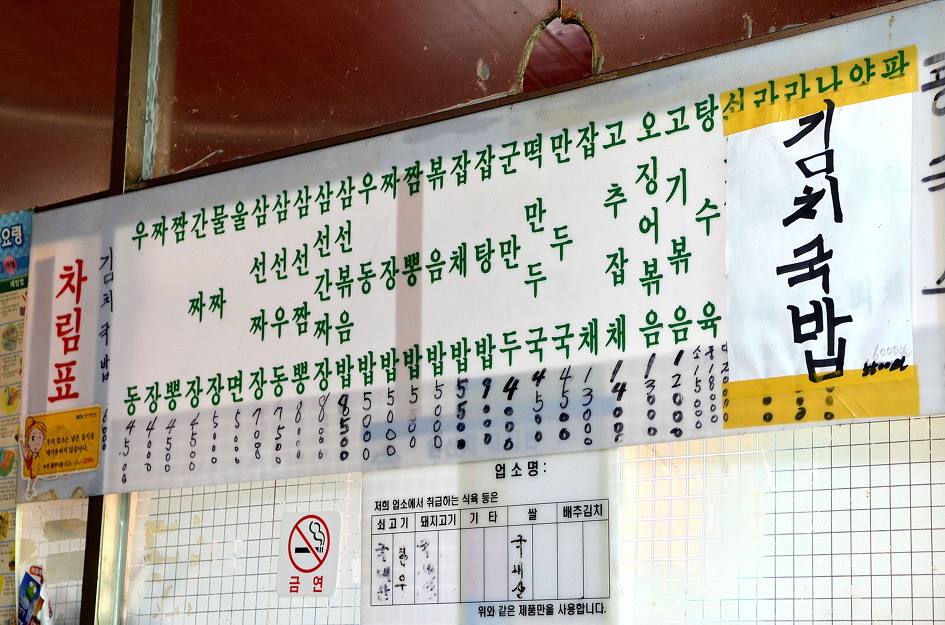 차림표
김치국밥 6000
우동 4500
짜장 4000
짬뽕 4500
간짜장 4500
물짜장 5000
울면 5000
삼선짜장 7000
삼선우동 7500
삼선짬뽕 8000
삼선간짜장 8000
삼선볶음밥 8500
우동밥 5000
짜장밥 5000
짬뽕밥 5000
볶음밥 5000
잡채밥 5500
잡탕밥 9000
군만두 4000
떡만두국 4500
만두국 4500
잡채 13000
고추잡채 14000
오징어볶음 13000
고기볶음 12000
탕수육
김치국밥
6000원
요령
금연
업소명:
저희 업소에서 취급하는 식육 등은
쇠고기 돼지고기 기타 쌀 배추김치
국내산 한우 국내산 국내산
위와 같은 제품만을 사용합니다.